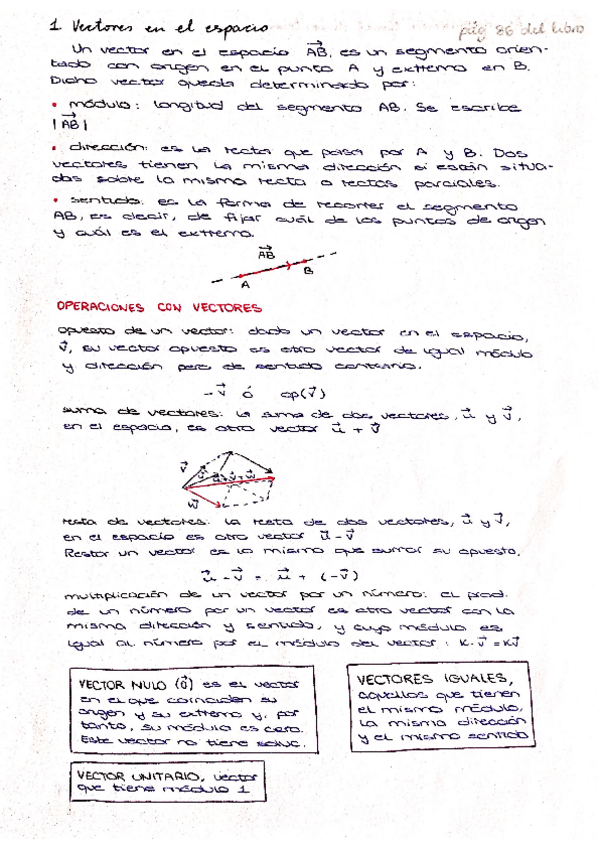 1. Vectores en el espacio
pág 86 del libro
Un vector en el espacio A⃗B⃗, es un segmento orien-
tado con origen en el punto A y extremo en B.
Dicho vector queda determinado por:
• módulo: longitud del segmento AB. Se escribe
|A⃗B⃗|
• dirección: es la recta que pasa por A y B. Dos
vectores tienen la misma dirección si están situa-
dos sobre la misma recta o rectas
• sentido: es la forma de recorrer el segmento
AB, es decir, de fijar cuál de los puntos de origen
y cuál es el extremo.
A⃗B⃗
A
B
OPERACIONES CON VECTORES
opuesto de un vector: dado un vector en el espacio,
v⃗, su vector opuesto es otro vector de igual módulo
y dirección pero de sentido contrario.
-v⃗ ó op(v⃗)
suma de vectores: la suma de dos vectores, u⃗ y v⃗,
en el espacio, es otro vector u⃗ + v⃗
v⃗
w⃗
resta de vectores: la resta de dos vectores, u⃗ y v⃗,
en el espacio es otro vector u⃗ - v⃗
Restar un vector es lo mismo que sumar su opuesto.
u⃗ - v⃗ = u⃗ + (-v⃗)
multiplicación de un vector por un número: el prod.
de un número por un vector es otro vector con la
misma dirección y sentido, y cuyo módulo es
igual al número por el módulo del vector: K·v⃗ = Kv⃗
VECTOR NULO (0⃗) es el vector
en el que coinciden su
origen y su extremo y, por
tanto, su módulo es cero.
Este vector no tiene
VECTORES IGUALES,
aquellos que tienen
el mismo módulo,
la misma dirección
y el mismo sentido
VECTOR UNITARIO, vector
que tiene módulo 1